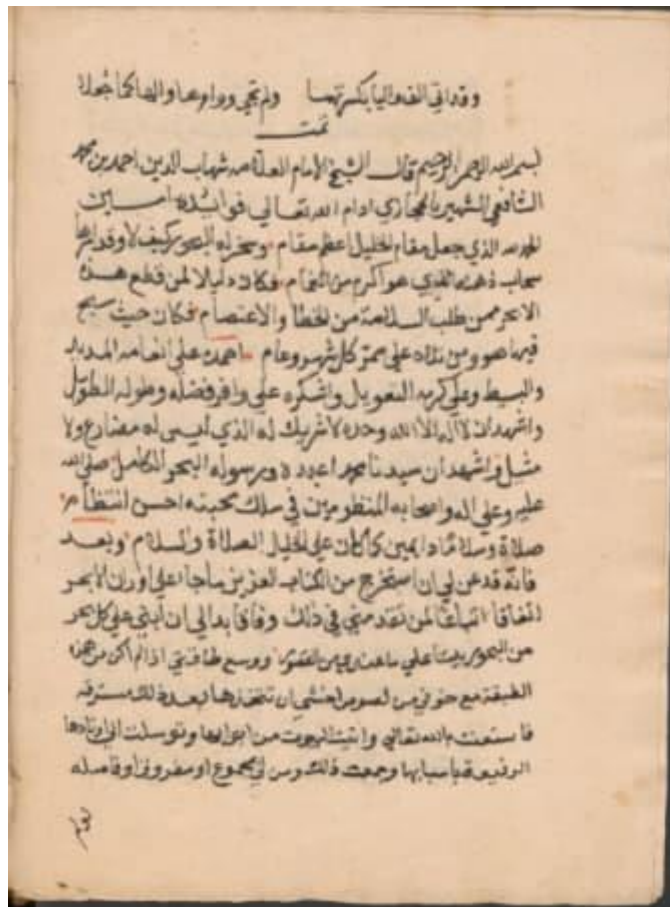 وقد اتى الف واليا بكسرتهما ولم تجي وواوها والضا كما جعلا
تمت
بسم الله الرحمن الرحيم قال الشيخ الامام العلامه شهاب الدين احمد بن محمد
الشافعي الشهير بالحجازي ادام الله تعالى فوائده امــين
الحمد لله الذي جعل مقام الخليل اعظم مقام وسخر له البحور كيف لا وقد
سحاب الذي هو اكرم من الغمام فكان دليلا لمن قطع هذه
الابحر ممن طلب السلامة من الخطا والاعتصام فكان حيث سبح
فيها هو ومن تلاه على ممر كل شهر وعام احمده على انعامه المديد
والبسيط وعلى كرمه التعويل واشكره على وافر فضله وطوله الطويل
واشهد ان لا اله الا الله وحده لا شريك له الذي ليس له مضارع ولا
مثيل واشهد ان سيدنا محمدا عبده ورسوله البحر الكامل صلى الله
عليه وعلى اله واصحابه المنظومين في سلك محبته احسن انتظام
صلاة وسلاما دايمين ما كان على الخليل الصلاة والسلام وبعد
فانه قد عن لي ان استخرج من الكتاب العزيز ما جا على اوزان الابحر
اتفاقا اتباعا لمن تقدمني في ذلك وفاقا بدا لي ان ابني على كل بحر
من البحور بيتا على ووسع طاقتي اذ لم اكن من هذه
الطبقة مع خوفي من لصوص ان تتخذها بعد ذلك مسترقه
فاستعنت بالله تعالى واتيت البيوت من ابوابها وتوسلت الى اوتادها
الرفيعة باسبابها وجمعت ذلك ومن لي بمجموع او مفروق او فاصله